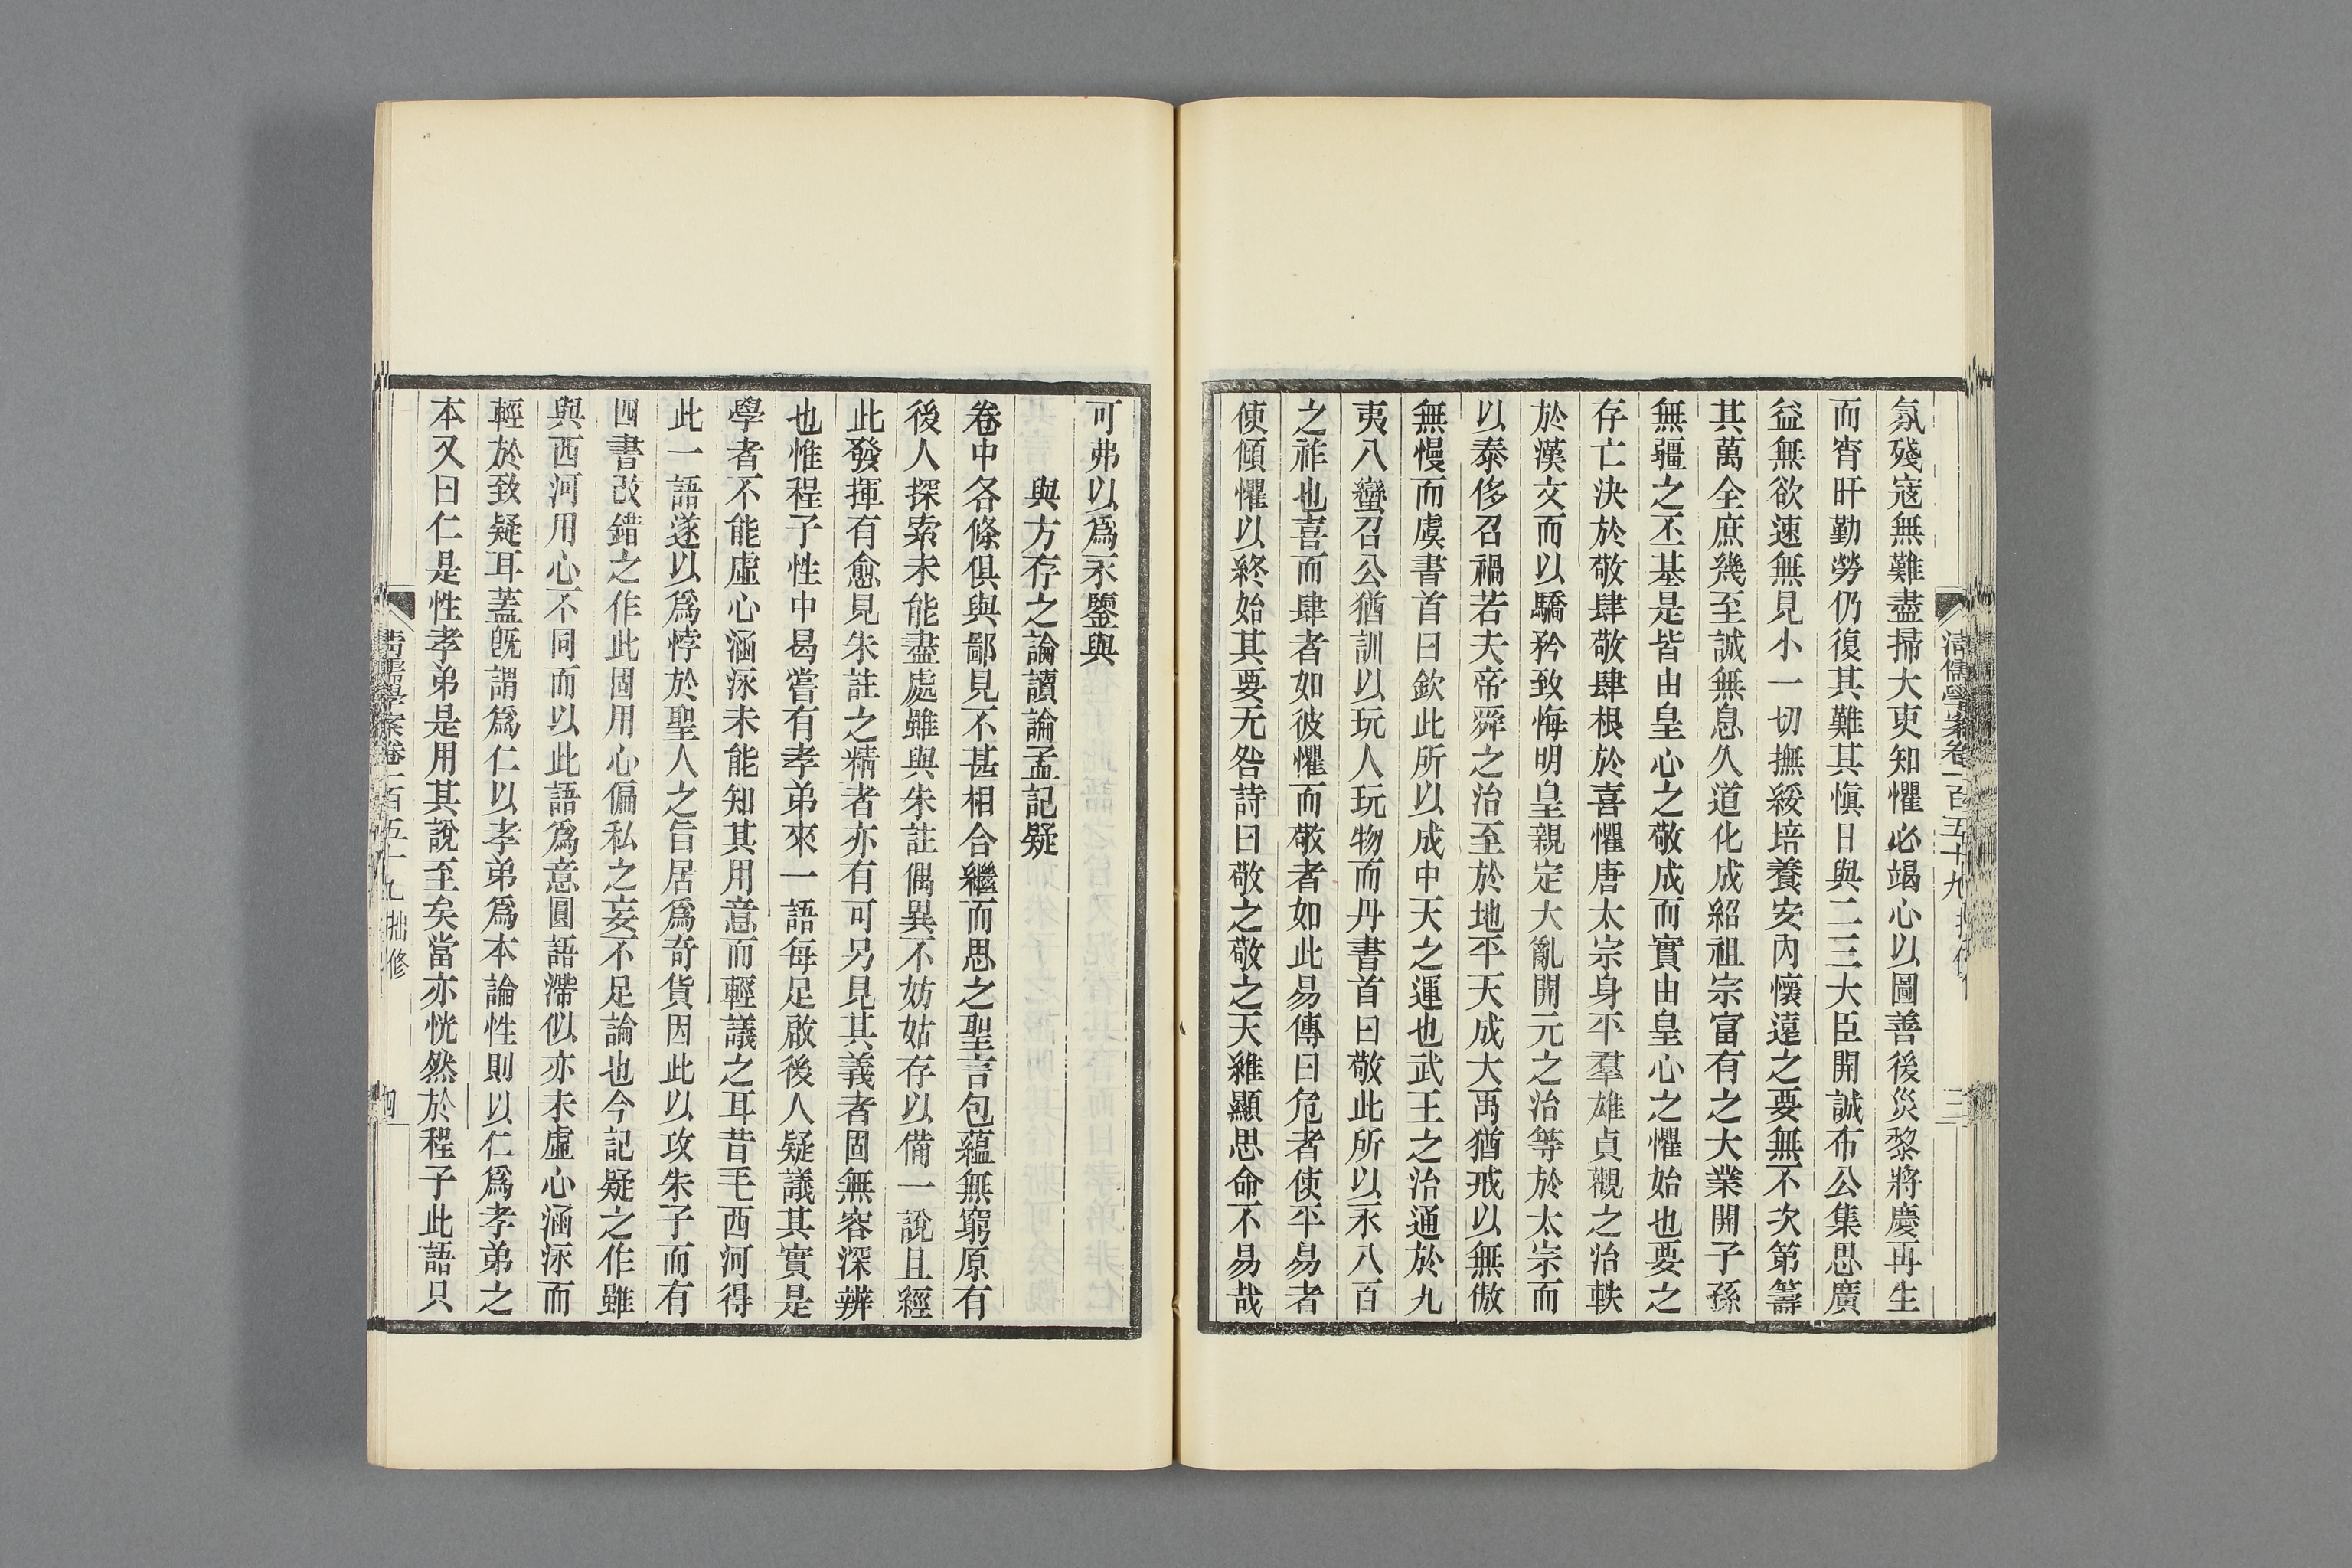 氛殘寇無難盡掃大吏知懼必竭心以圖善後災黎將慶再生
而宵旰勤勞仍復其難其愼日與二三大臣開誠布公集思廣
益無欲速無見小一切撫綏培養安內懷遠之要無不次第籌
其萬全庶幾至誠無息久道化成紹祖宗富有之大業開子孫
無疆之丕基是皆由皇心之敬成而實由皇心之懼始也要之
存亡決於敬肆敬肆根於喜懼唐太宗身平羣雄貞觀之治軼
於漢文而以驕矜致悔明皇親定大亂開元之治等於太宗而
以泰侈召禍若夫帝舜之治至於地平天成大禹猶戒以無傲
無慢而虞書首曰欽此所以成中天之運也武王之治通於九
夷八蠻召公猶訓以玩人玩物而丹書首曰敬此所以永八百
之祚也喜而肆者如彼懼而敬者如此易傳曰危者使平易者
使傾懼以終始其要无咎詩曰敬之敬之天維顯思命不易哉
清儒學案卷一百五十九 三
可弗以爲永鑒與
與方存之論讀論孟記疑
卷中各條俱與鄙見不甚相合繼而思之聖言包蘊無窮原有
後人探索未能盡處雖與朱註偶異不妨姑存以備一說且經
此發揮有愈見朱註之精者亦有可另見其義者固無容深辨
也惟程子性中曷嘗有孝弟來一語每足啟後人疑議其實是
學者不能虛心涵泳未能知其用意而輕議之耳昔毛西河得
此一語遂以爲悖於聖人之旨居爲奇貨因此以攻朱子而有
四書改錯之作此固用心偏私之妄不足論也今記疑之作雖
與西河用心不同而以此語爲意圓語滯似亦未虛心涵泳而
輕於致疑耳蓋旣謂爲仁以孝弟爲本論性則以仁爲孝弟之
本又曰仁是性孝弟是用其說至矣當亦恍然於程子此語只
清儒學案卷一百五十九 拙修 四